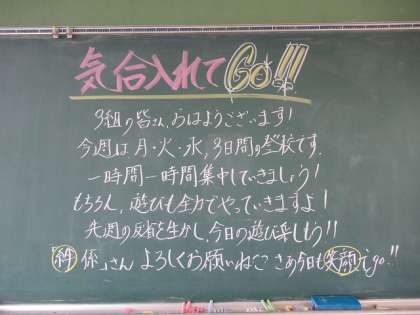 気合入れてGo!!!
3組の皆さん、おはようございます!
今週は月・火・水、3日間の登校です。
一時間一時間集中していきましょう!
もちろん、遊びも全力でやっていきますよ!
先週の反省を生かし、今日の遊び楽しもう!!
「絆係」さん よろしくお願いね♡♡ さぁ今日も笑顔でgo!!